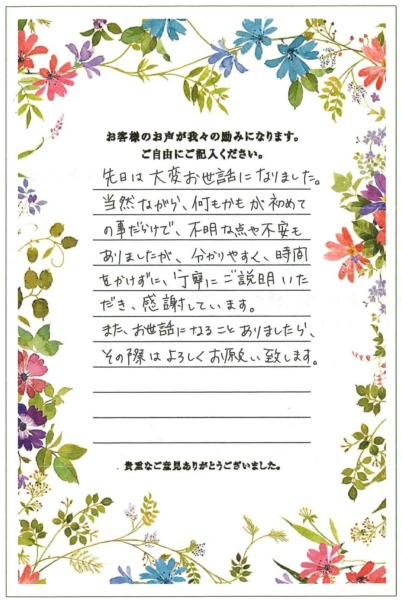 お客様のお声が我々の励みになります。
ご自由にご記入ください。
先日は大変お世話になりました。
当然ながら、何もかもが初めて
の事だらけで、不明な点や不安も
ありましたが、分かりやすく、時間
をかけずに、丁寧にご説明いた
だき、感謝しています。
また、お世話になることありましたら、
その際はよろしくお願い致します。
貴重なご意見ありがとうございました。